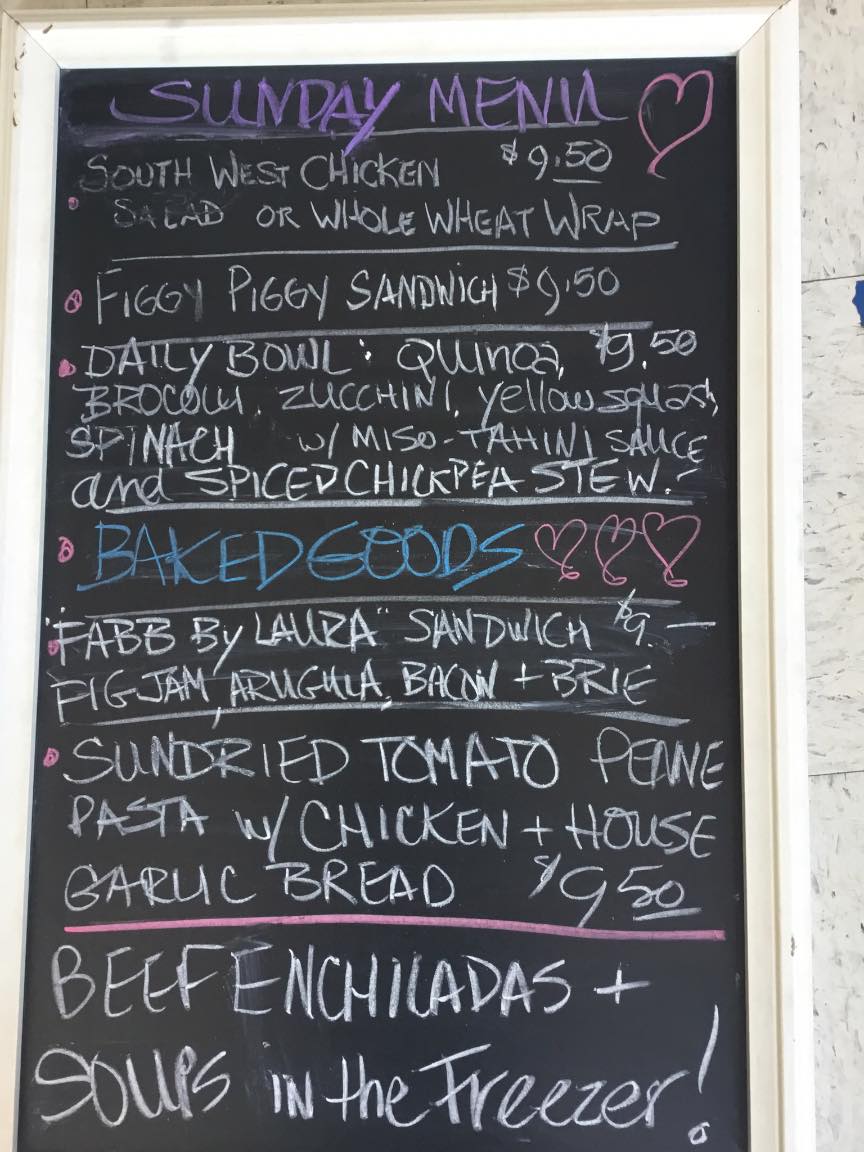 SUNDAY MENU
SOUTH WEST CHICKEN $9.50
SALAD OR WHOLE WHEAT WRAP
FIGGY PIGGY SANDWICH $9.50
DAILY BOWL: QUINOA, $9.50
BROCOLLI, ZUCCHINI, yellow squash,
SPINACH w/ MISO-TAHINI SAUCE
and SPICED CHICKPEA STEW.
BAKED GOODS
"FABB By LAURA" SANDWICH $9.—
FIG JAM, ARUGULA, BACON + BRIE
SUNDRIED TOMATO PENNE
PASTA w/ CHICKEN + HOUSE
GARLIC BREAD $9 50
BEEF ENCHILADAS +
SOUPS IN the Freezer!